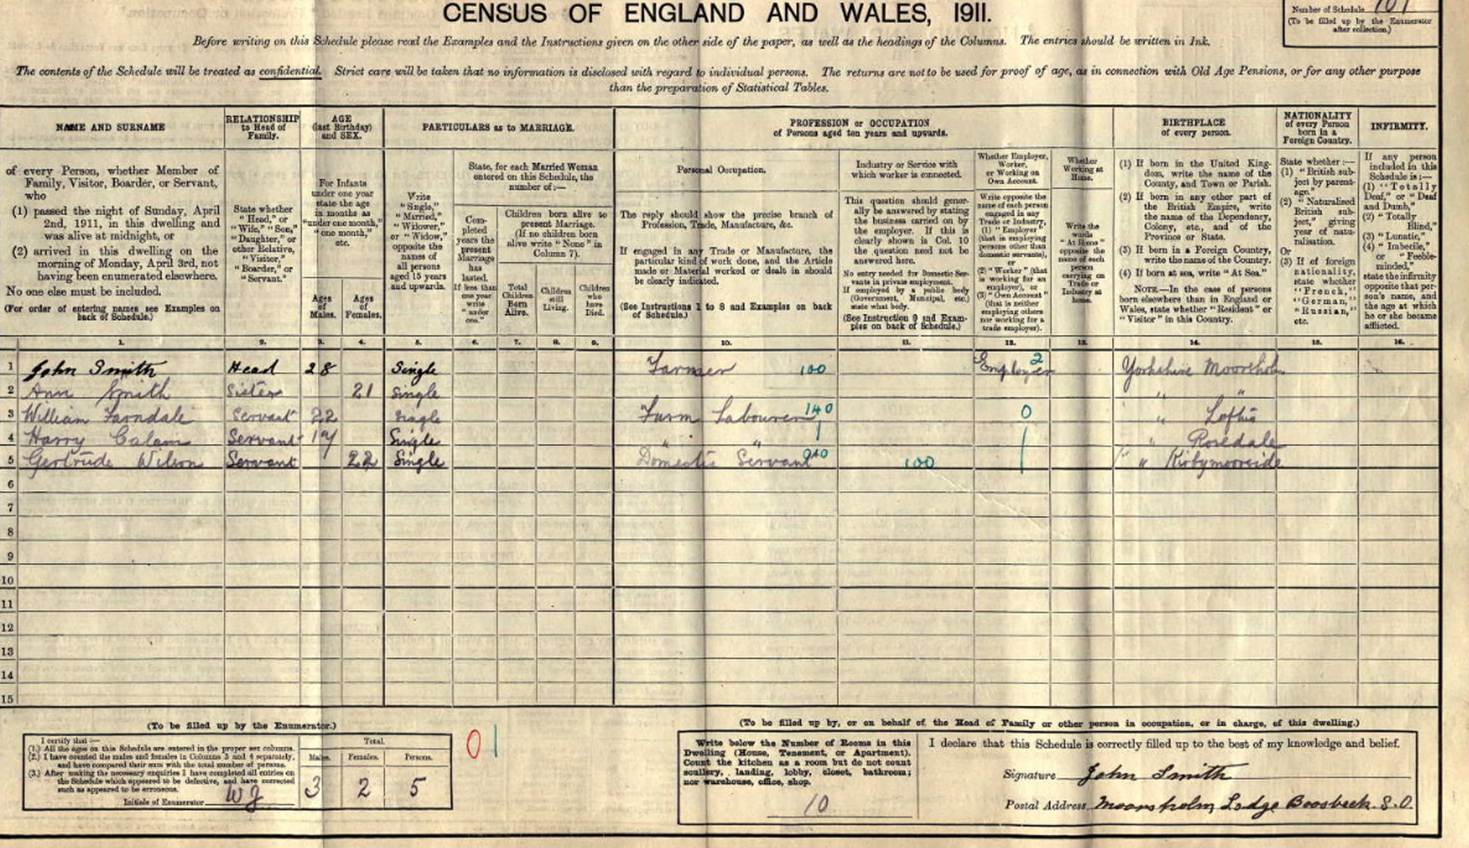 CENSUS OF ENGLAND AND WALES, 1911.
Number of Schedule 101
(To be filled up by the Enumerator
after collection.)
Before writing on this Schedule please read the Examples and the Instructions given on the other side of the paper, as well as the headings of the Columns. The entries should be written in Ink.
The contents of the Schedule will be treated as confidential. Strict care will be taken that no information is disclosed with regard to individual persons. The returns are not to be used for proof of age, as in connection with Old Age Pensions, or for any other purpose
than the preparation of Statistical Tables.
NAME AND SURNAME
of every Person, whether Member of
Family, Visitor, Boarder, or Servant,
who
(1) passed the night of Sunday, April
2nd, 1911, in this dwelling and
was alive at midnight, or
(2) arrived in this dwelling on the
morning of Monday, April 3rd, not
having been enumerated elsewhere.
No one else must be included.
(For order of entering names see Examples on
back of Schedule.)
RELATIONSHIP
to Head of
Family.
State whether
"Head," or
"Wife," "Son,"
"Daughter," or
other Relative,
"Visitor,"
"Boarder," or
"Servant."
AGE
(last Birthday)
and SEX.
For Infants
under one year
state the age
in months as
"under one month,"
"one month,"
etc.
Ages
of
Males.
Ages
of
Females.
PARTICULARS as to MARRIAGE.
Write
"Single,"
"Married,"
"Widower,"
or "Widow,"
opposite the
names of
all persons
aged 15 years
and upwards.
State, for each Married Woman
entered on this Schedule, the
number of:—
Completed
years the
present
Marriage
has
lasted.
If less than
one year
write
"under
one."
Children born alive to
present Marriage.
(If no children born
alive write "None" in
Column 7).
Total
Children
Born
Alive.
Children
still
Living.
Children
who
have
Died.
PROFESSION or OCCUPATION
of Persons aged ten years and upwards.
Personal Occupation.
The reply should show the precise branch of
Profession, Trade, Manufacture, &c.
If engaged in any Trade or Manufacture, the
particular kind of work done, and the Article
made or Material worked or dealt in should
be clearly indicated.
(See Instructions 1 to 8 and Examples on back
of Schedule.)
Industry or Service with
which worker is connected.
This question should gener-
ally be answered by stating
the business carried on by
the employer. If this is
clearly shown in Col. 10
the question need not be
answered here.
No entry needed for Domestic Ser-
vants in private employment.
If employed by a public body
(Government, Municipal, etc.)
state what body.
(See Instruction 9 and Exam-
ples on back of Schedule.)
Whether Employer,
Worker,
or Working on
Own Account.
Write opposite the
name of each person
engaged in any
Trade or Industry,
(1) "Employer"
(that is employing
persons other than
domestic servants),
or
(2) "Worker" (that
is working for an
employer), or
(3) "Own Account"
(that is neither
employing others
nor working for a
trade employer).
Whether
Working at
Home.
Write the
words
"At Home"
opposite the
name of each
person
carrying on
Trade or
Industry at
home.
BIRTHPLACE
of every person.
(1) If born in the United King-
dom, write the name of the
County, and Town or Parish.
(2) If born in any other part of
the British Empire, write
the name of the Dependency,
Colony, etc., and of the
Province or State.
(3) If born in a Foreign Country,
write the name of the Country.
(4) If born at sea, write "At Sea."
NOTE.—In the case of persons
born elsewhere than in England or
Wales, state whether "Resident" or
"Visitor" in this Country.
NATIONALITY
of every Person
born in a
Foreign Country.
State whether:—
(1) "British sub-
ject by parent-
age."
(2) "Naturalised
British sub-
ject," giving
year of natu-
ralisation.
Or
(3) If of foreign
nationality,
state whether
"French,"
"German,"
"Russian,"
etc.
INFIRMITY.
If any person
included in this
Schedule is:—
(1) "Totally
Deaf," or "Deaf
and Dumb,"
(2) "Totally
Blind,"
(3) "Lunatic,"
(4) "Imbecile,"
or "Feeble-
minded,"
state the infirmity
opposite that per-
son's name, and
the age at which
he or she became
afflicted.
1. 2. 3. 4. 5. 6. 7. 8. 9. 10. 11. 12. 13. 14. 15. 16.
1 John Smith Head 28 Single Farmer 100 Employer 2 Yorkshire Moorsholm
2 Ann Smith Sister 21 Single " "
3 William Farndale Servant 22 Single Farm Labourer 140 0 " Loftus
4 Harry Calam Servant 17 Single " " " Rosedale
5 Gertrude Wilson Servant 22 Single Domestic Servant 100 " " Kirbymoorside
6
7
8
9
10
11
12
13
14
15
(To be filled up by the Enumerator.)
I certify that:—
(1.) All the ages on this Schedule are entered in the proper sex columns.
(2.) I have counted the males and females in Columns 3 and 4 separately,
and have compared their sum with the total number of persons.
(3.) After making the necessary enquiries I have completed all entries on
the Schedule which appeared to be defective, and have corrected
such as appeared to be erroneous.
Initials of Enumerator WJ
Total.
Males. Females. Persons.
3 2 5
01
(To be filled up by, or on behalf of, the Head of Family or other person in occupation, or in charge, of this dwelling.)
Write below the Number of Rooms in this
Dwelling (House, Tenement, or Apartment).
Count the kitchen as a room but do not count
scullery, landing, lobby, closet, bathroom;
nor warehouse, office, shop.
10
I declare that this Schedule is correctly filled up to the best of my knowledge and belief.
Signature John Smith
Postal Address Moorsholm Lodge Boosbeck. S.O.